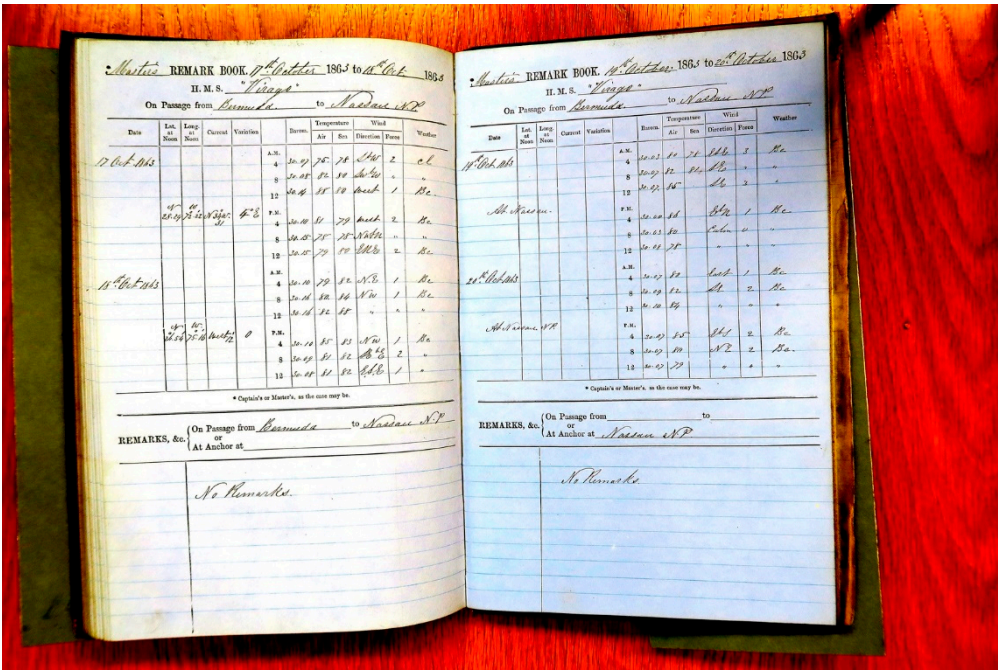 *Master's REMARK BOOK. 17th October 1863 to 18th Oct 1863
H. M. S. "Virago"
On Passage from Bermuda to Nassau NP
Date Lat. at Noon Long. at Noon Current Variation Barom. Temperature Air Sea Wind Direction Force Weather
17 Oct 1863 A.M.
4 30.07 75 78 2
8 30.08 82 80 " "
12 88 80 West 1 Bc.
N W P.M.
4 30.10 81 79 West 2 Bc
8 30.15 75 78 " "
12 30.15 79 80 2 Bc
18th Oct 1863 A.M.
4 30.10 79 82 N.E 1 Bc
8 30.16 80 84 N W 1 Bc
12 30.16 82 88 " " "
N W P.M.
0 4 30.10 85 83 N W 1 Bc
8 30.09 81 82 2 "
12 30.08 81 82 1 "
* Captain's or Master's, as the case may be.
REMARKS, &c. { On Passage from Bermuda to Nassau N.P
or
At Anchor at
No Remarks.
*Master's REMARK BOOK. 19th October 1863 to 20th October 1863
H. M. S. "Virago"
On Passage from Bermuda to Nassau NP
Date Lat. at Noon Long. at Noon Current Variation Barom. Temperature Air Sea Wind Direction Force Weather
19th Oct 1863 A.M.
4 30.03 80 78 3 Bc
8 30.07 82 "
12 30.07
At Nassau. P.M.
4 86 1 Bc
8 30.03 80 Calm 0 "
12 30.08 78 " " "
20th Oct 1863 A.M.
4 30.07 80 East 1 Bc
8 30.09 82 2 Bc
12 30.10 84 " " "
At Nassau NP. P.M.
4 30.07 85 2 Bc
8 30.07 80 N.E 2 Bc.
12 30.07 79 " " "
* Captain's or Master's, as the case may be.
REMARKS, &c. { On Passage from to
or
At Anchor at Nassau NP
No Remarks.